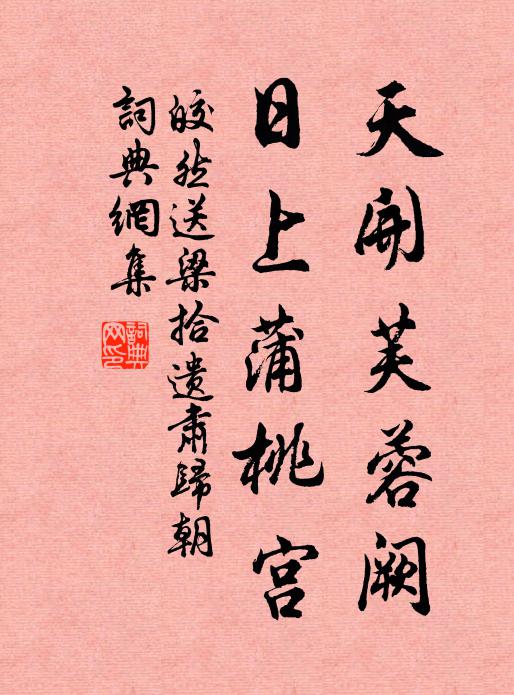 天開芙蓉阙
日上蒲桃宫
皎然送梁拾遗肅歸朝
詞典網集
詞典网印